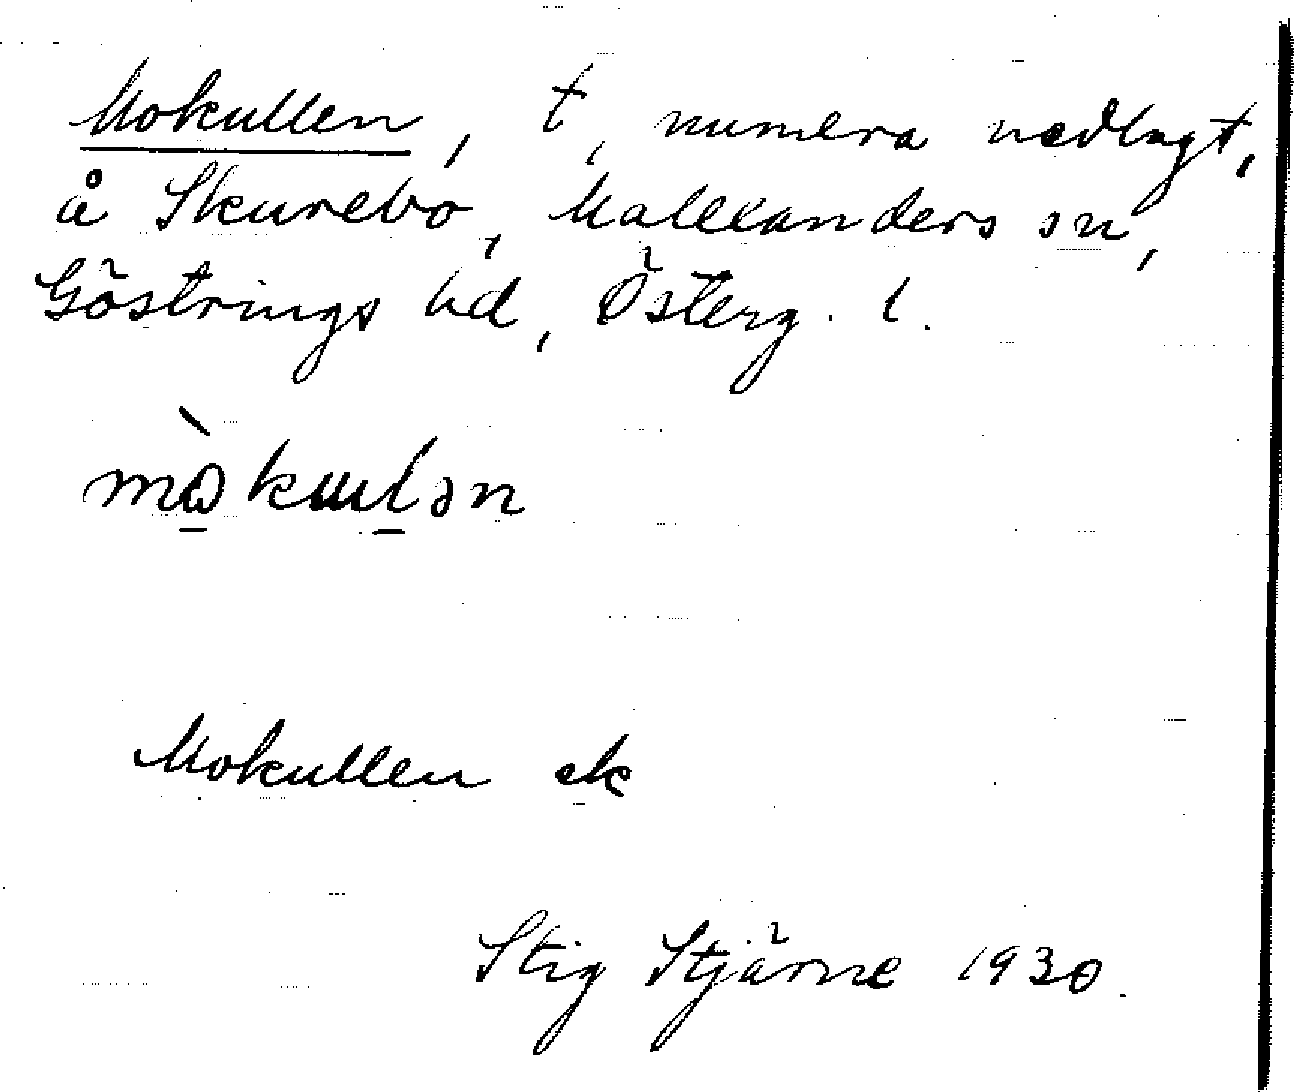 Mokullen, t, numera nedlagt,
å Skurebo, Malexanders sn,
Göstrings hd, Österg. l.
mὼkɯlən
Mokullen ek
Stig Stjärne 1930.